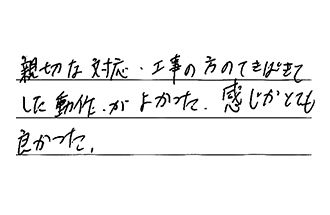 親切な対応・工事の方のてきぱきて
した動作.がよかった.感じかとても
良かった.